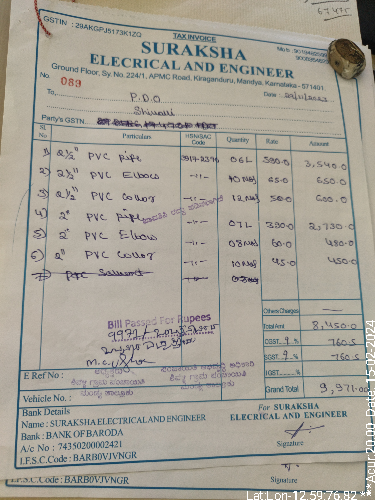 67475
GSTIN : 29AKGPJ5173K1ZQ
TAX INVOICE
SURAKSHA
ELECRICAL AND ENGINEER
Ground Floor, Sy. No. 224/1, APMC Road, Kiragandуru, Mandya, Karnataka - 571401.
No. 089
To, P.D.O
Date :
Shivalli
Party's GSTN.
Sl. No Particulars HSN/SAC Code Quantity Rate Amount
1) 2½" PVC Pipe 3917-2390 06L 590-0 3,540-0
2) 2½" PVC Elbow -11- 10 Nos 65-0 650-0
3) 2½" PVC Collor -11- 12 Nos 50-0 600-0
4) 2" PVC Pipe 07L 390-0 2,730-0
5) 2" PVC Elbow -11- 08 Nos 60-0 480-0
6) 2" PVC Collor -11- 10 Nos 45-0 450-0
Bill Passed For Rupees
9971/-
Others Charges
Total Amt 8,450-0
CGST. 9 % 760-5
SGST. 9 % 760-5
IGST. %
Grand Total 9,971-00
E Ref No :
Vehicle No. :
Bank Details
Name : SURAKSHA ELECTRICAL AND ENGINEER
Bank : BANK OF BARODA
A/c No : 74350200002421
I.F.S.C.Code : BARB0VJVNGR
For SURAKSHA
ELECRICAL AND ENGINEER
Signature
I.F.S.C.Code : BARB0VJVNGR
Signature
Lat Lon- 12.59,76.82